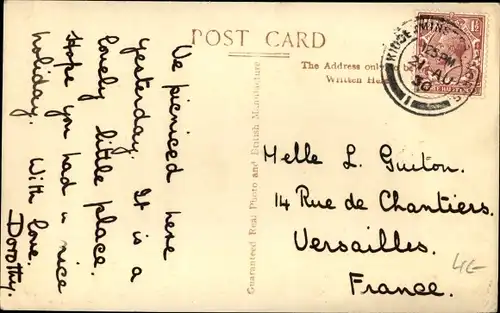 POST CARD
We picniced here
yesterday. It is a
lovely little place.
Hope you had a nice
holiday. With love.
Dorothy.
Guaranteed Real Photo and British Manufacture
The Address only
Written Here
KIDDERMINSTER
21 AU
30
1
Melle L. Guiton.
14 Rue de Chantiers.
Versailles.
France.
4.-